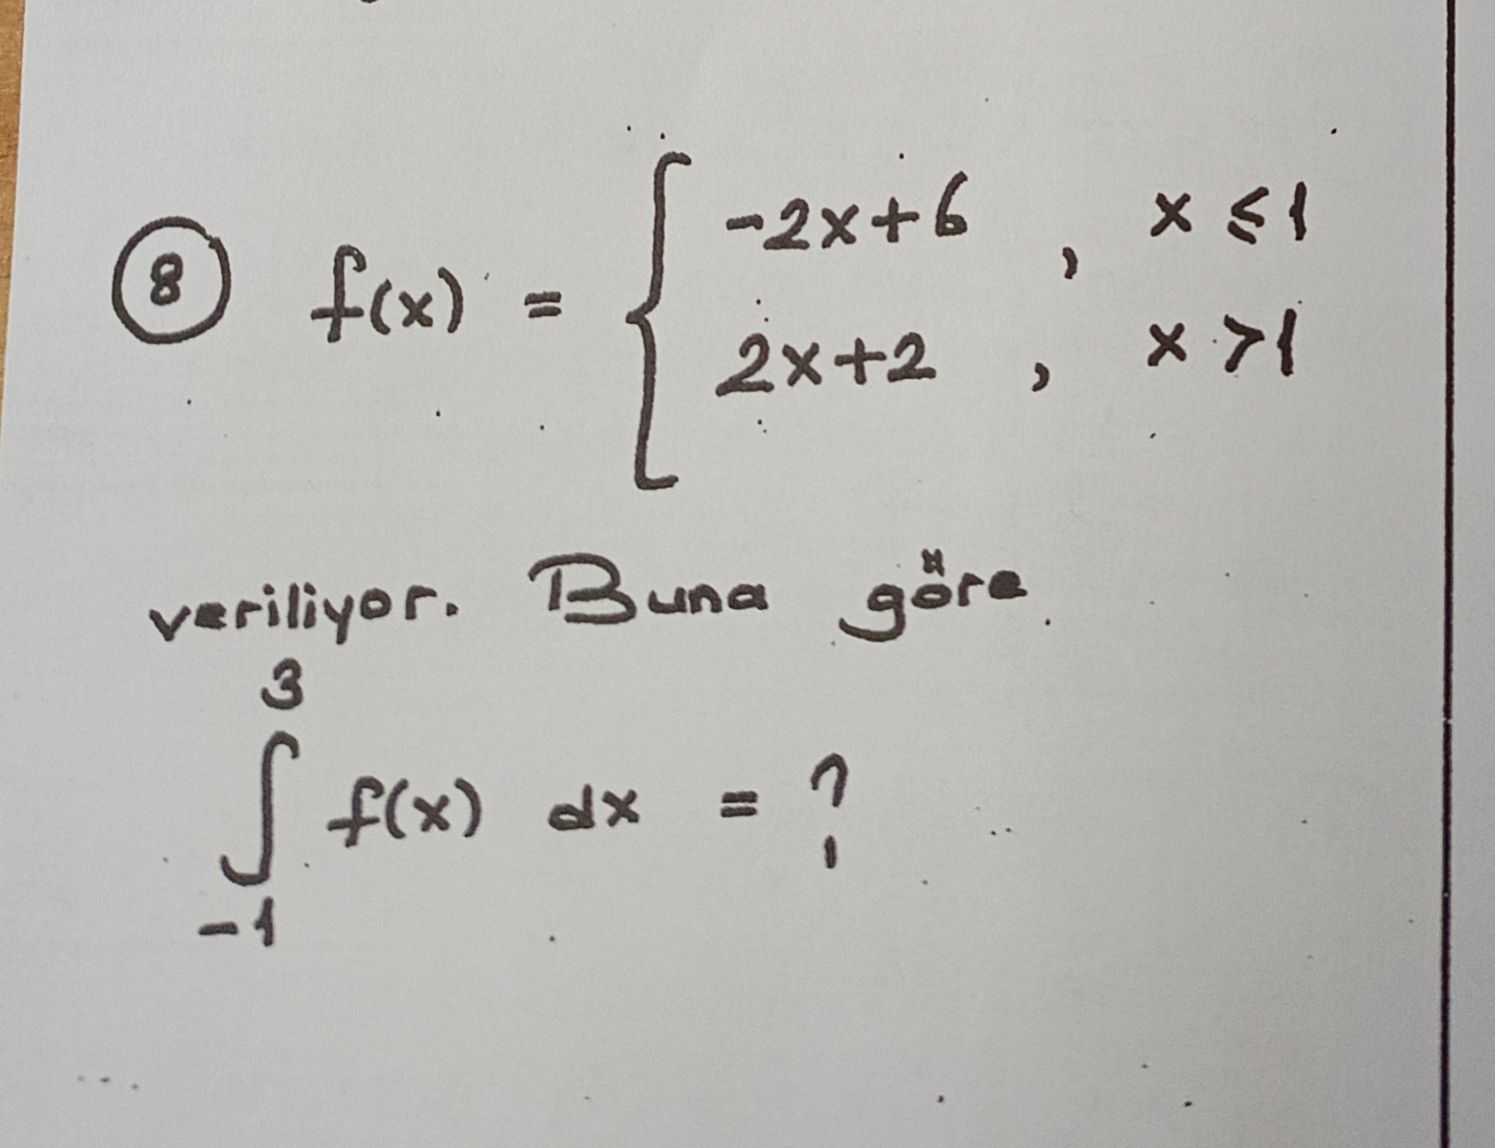 ⑧ f(x) = { -2x+6 , x ≤ 1
2x+2 , x > 1
veriliyor. Buna göre
3
∫ f(x) dx = ?
-1